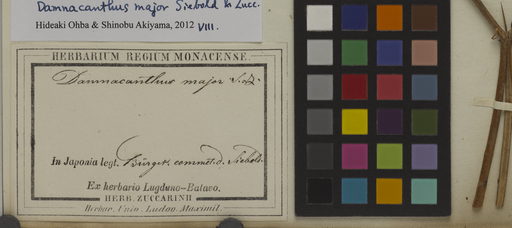 Damnacanthus major Siebold & Zucc.
Hideaki Ohba & Shinobu Akiyama, 2012 VIII.
HERBARIUM REGIUM MONACENSE.
Damnacanthus major S. Z.
In Japonia legt. Bürger, commend. Siebold.
Ex herbario Lugduno-Batavo.
HERB. ZUCCARINII
Herbar. Univ. Ludov. Maximil.